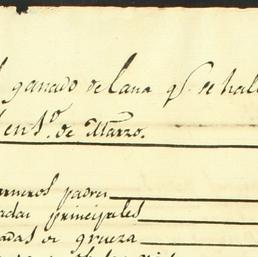 ganado de lana q.e se hal
en 1.o de Marzo.
arneros padres
adas principales
adas de grueza